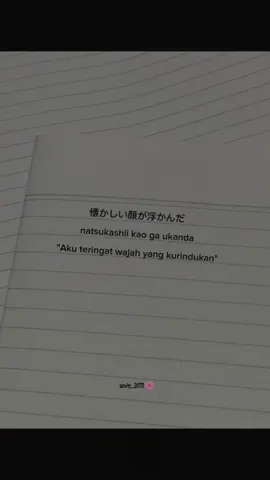 懐かしい顔が浮かんだ
natsukashii kao ga ukanda
"Aku teringat wajah yang kurindukan"